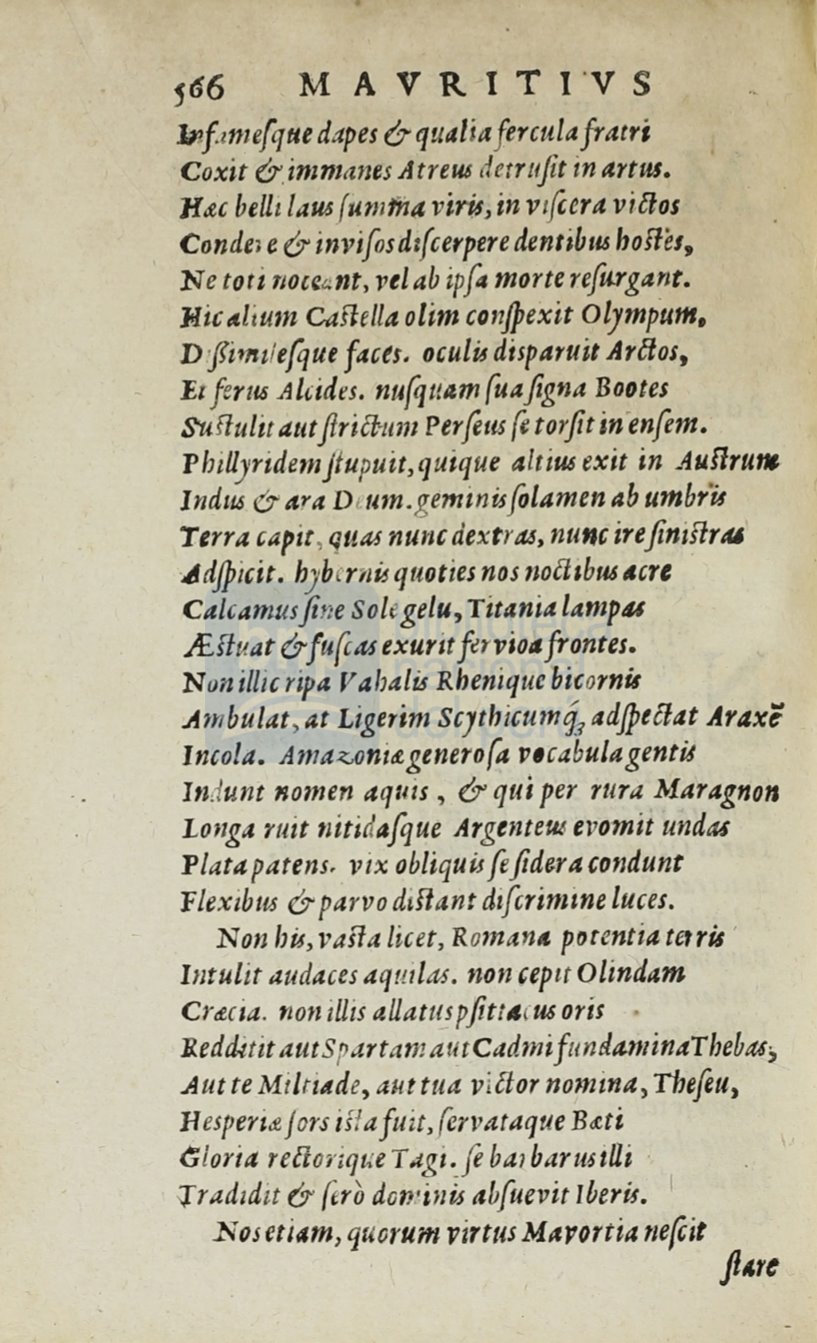 566 MAVRITIVS
Infamesque dapes & qualia fercula fratri
Coxit & immanes Atreus detrusit in artus.
Hæc belli laus summa viris, in viscera victos
Condere & invisos discerpere dentibus hostes,
Ne toti noceant, vel ab ipsa morte resurgant.
Hic alium Castella olim conspexit Olympum,
Dissimilesque faces. oculis disparuit Arctos,
Et ferus Alcides. nusquam sua signa Bootes
Sustulit aut strictum Perseus se torsit in ensem.
Phillyridem stupuit, quique altius exit in Austrum
Indus & ara Deum. geminis solamen ab umbris
Terra capit, quas nunc dextras, nunc ire sinistras
Adspicit. hybernis quoties nos noctibus acre
Calcamus sine Sole gelu, Titania lampas
Æstuat & fuscas exurit fervida frontes.
Non illic ripa Vahalis Rhenique bicornis
Ambulat, at Ligerim Scythicumq́; adspectat Araxē
Incola. Amazoniæ generosa vocabula gentis
Indunt nomen aquis, & qui per rura Maragnon
Longa ruit nitidasque Argenteus evomit undas
Plata patens. vix obliquis se sidera condunt
Flexibus & parvo distant discrimine luces.
Non his, vasta licet, Romana potentia terris
Intulit audaces aquilas. non cepit Olindam
Cræcia. non illis allatus psittacus oris
Reddidit aut Spartam aut Cadmi fundamina Thebas,
Aut te Miltiade, aut tua victor nomina, Theseu,
Hesperiæ sors ista fuit, servataque Bæti
Gloria rectorique Tagi. se barbarus illi
Tradidit & serò dominis absuevit Iberis.
Nos etiam, quorum virtus Mavortia nescit
stare